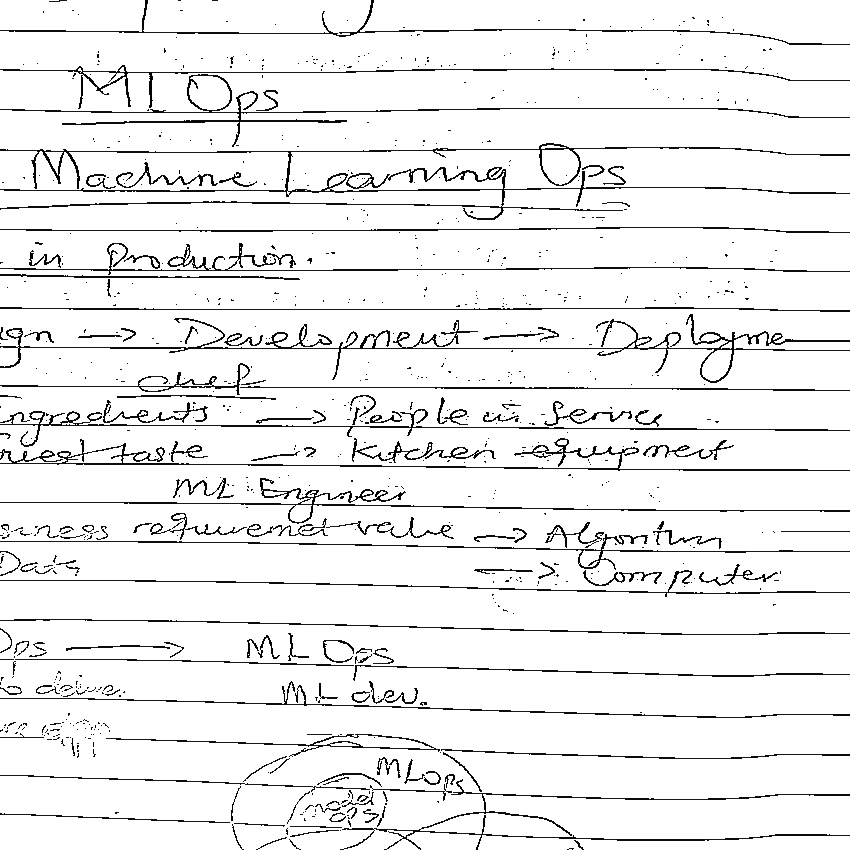 MLOps
Machine Learning Ops
in production.
ign → Development → Deployme
chef
ingredients → People in Service
taste → Kitchen equipment
ML Engineer
siness requiremet value → Algorithm
Data → Computer
Ops → MLOps
to delive ML dev.
MLOps
model
OPS